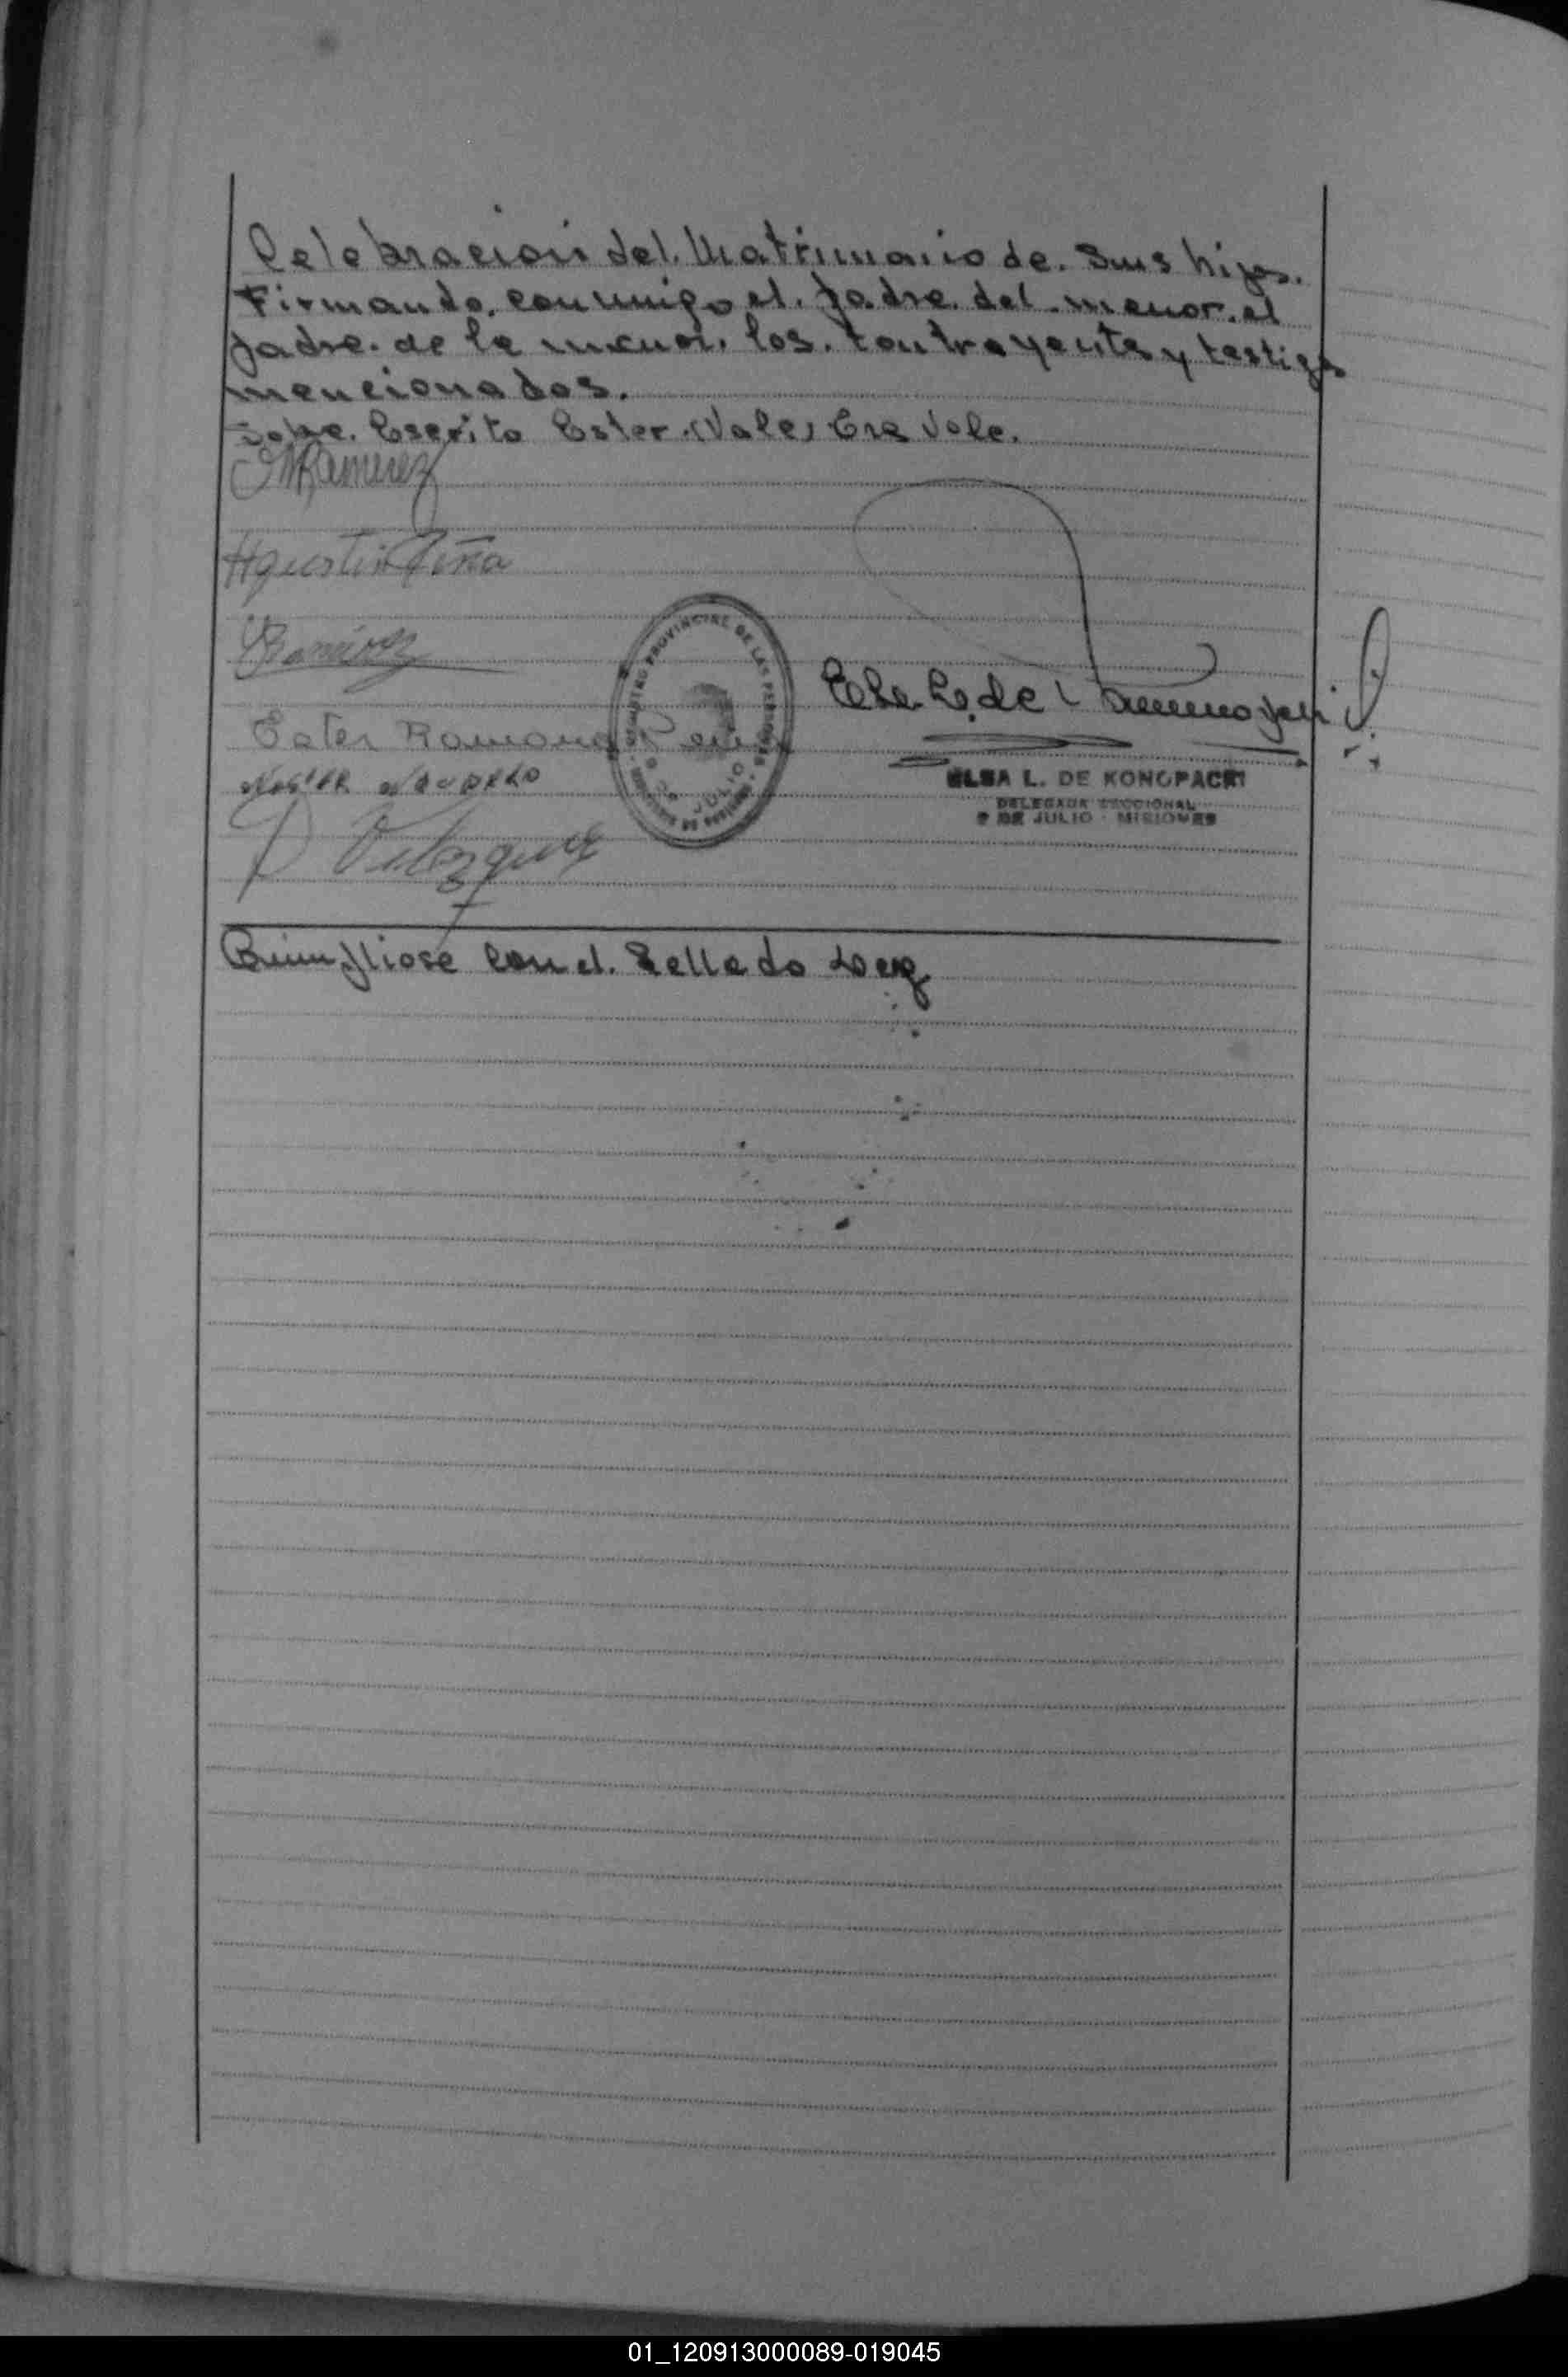 Celebracion del. Matrimonio de. Sus hijos.
Firmando. conmigo el. padre. del. menor. el
padre. de la menor. los. contrayentes y testigos
mencionados.
Sobre. Escrito Ester. (Vale) Era Vale.
Ramirez
Agustin Piña
Ramirez
Ester Ramona
REGISTRO PROVINCIAL DE LAS PERSONAS
9 DE JULIO
ELSA L. DE KONOPACKI
DELEGADA SECCIONAL
9 DE JULIO - MISIONES
Velazquez
Cumpliose con el. Sellado Ley
01_120913000089-019045